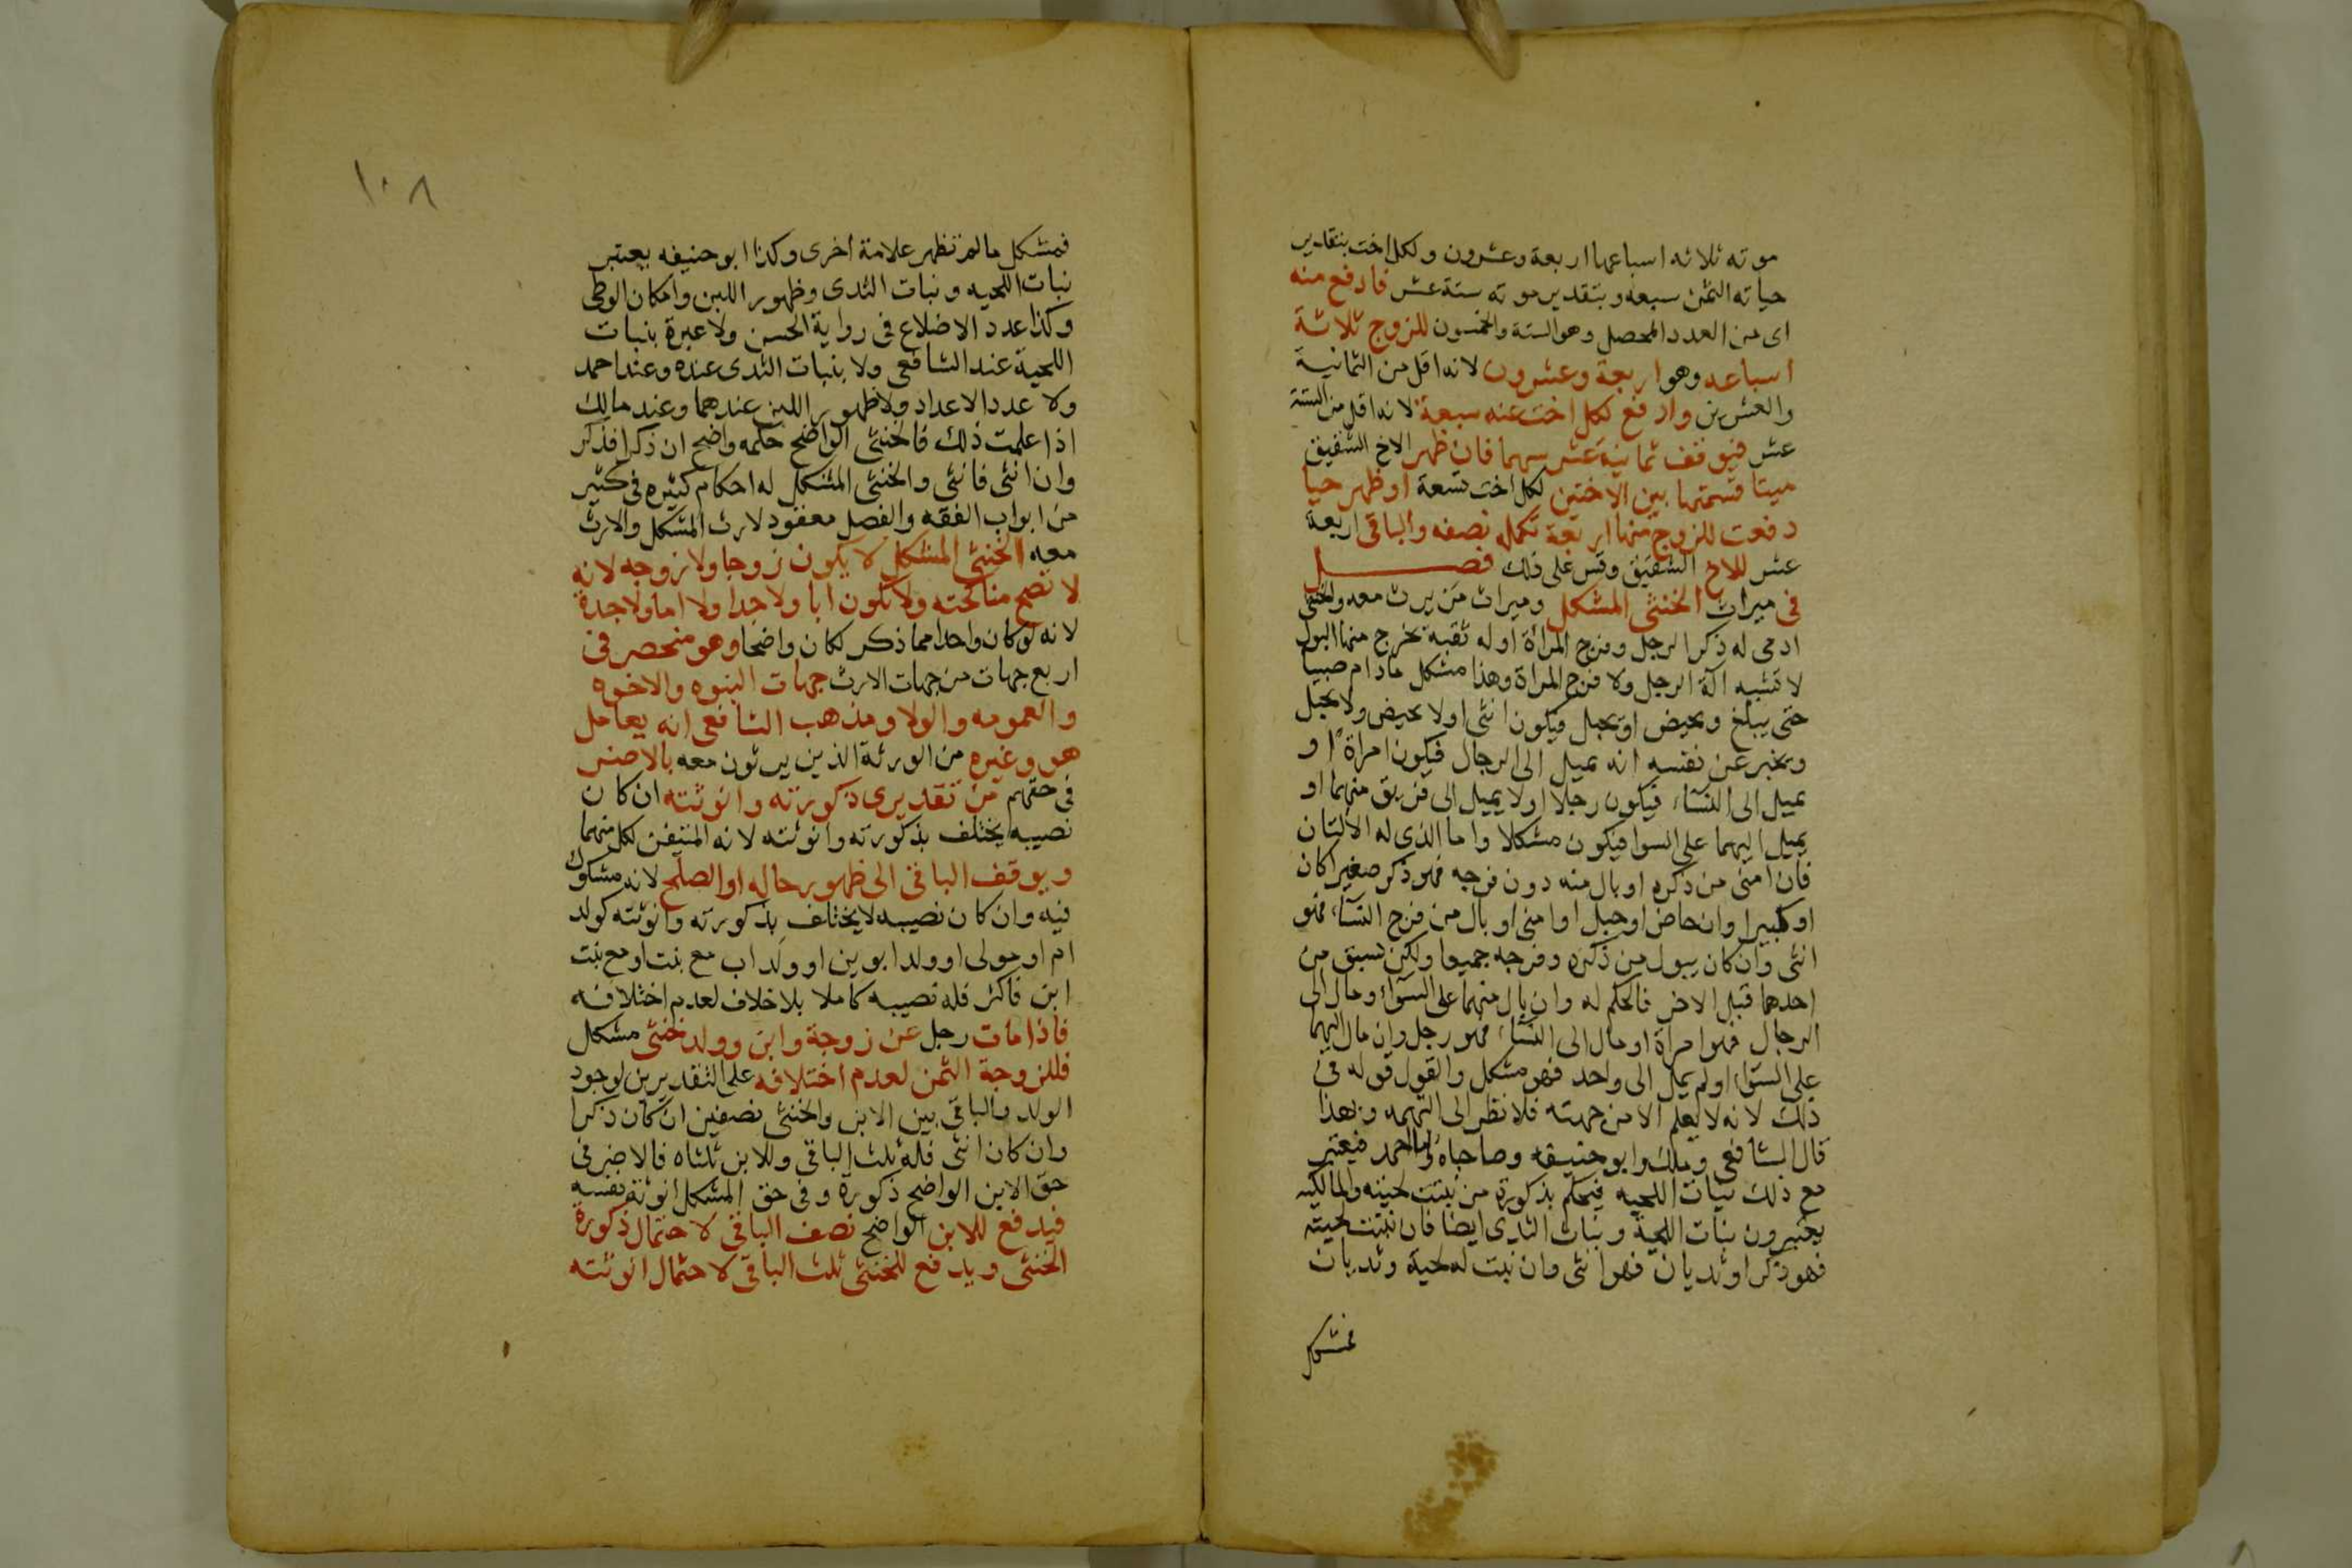 موته ثلاثه اسباعها اربعة وعشرون ولكل اخت بتقدير
حياته الثمن سبعه وبتقدير موته ستة عشر فادفع منه
اى من العدد المحصل وهو الستة والخمسون للزوج ثلاثة
اسباعه وهو اربعة وعشرون لانه اقل من الثمانية
والعشرين وادفع لكل اخت منه سبعة لانه اقل من الستة
عشر فيوقف ثمانية عشر سهما فان ظهر الاخ الشقيق
ميتا قسمتها بين الاختين لكل اخت تسعة او ظهر حيا
دفعت للزوج منها اربعة تكملة نصفه والباقى اربعة
عشر للاخ الشقيق وقس على ذلك فصل
فى ميراث الخنثى المشكل وميراث من يرث معه والخنثى
ادمى له ذكر الرجل وفرج المراة او له ثقبة يخرج منها البول
لا تشبه آلة الرجل ولا فرج المراة وهذا مشكل مادام صبيا
حتى يبلغ ويحيض او يحبل فيكون انثى او لا يحيض ولا يحبل
ويخبر عن نفسه انه يميل الى الرجال فيكون امراة او
يميل الى النساء فيكون رجلا او لا يميل الى فريق منهما او
يميل اليهما على السوا فيكون مشكلا واما الذى له الألتان
فان امنى من ذكره او بال منه دون فرجه فهو ذكر صغيرا كان
او كبيرا وان حاض او حبل او امنى او بال من فرج النساء فهو
انثى وان كان يبول من ذكره وفرجه جميعا ولكن تسبق من
احدهما قبل الاخر فالحكم له وان بال منهما على السواء ومال الى
الرجال فهو امراة او مال الى النساء فهو رجل وان مال اليهما
على السواء او لم يمل الى واحد فهو مشكل والقول قوله فى
ذلك لانه لا يعلم الا من جهته فلا نظر الى التهمه وبهذا
قال الشافعى وملك وابو حنيفه وصاحباه واما احمد فيعتبر
مع ذلك نبات اللحيه فيحكم بذكورة من نبتت لحيته والمالكيه
يعتبرون نبات اللحية ونبات الثدى ايضا فان نبتت لحيته
فهو ذكر او ثديان فهو انثى وان نبت له لحية وثديان
فمشكل
١٠٨
فمشكل مالم تظهر علامة اخرى وكذا ابو حنيفه يعتبر
نبات اللحيه ونبات الثدى وظهور اللبن وامكان الوطى
وكذا عدد الاضلاع فى رواية الحسن ولا عبرة بنبات
اللحية عند الشافعى ولا بنبات الثدى عنده وعند احمد
ولا عدد الاعداد ولا ظهور اللبن عندهما وعند مالك
اذا علمت ذلك فالخنثى الواضح حكمه واضح ان ذكرا فذكر
وان انثى فانثى والخنثى المشكل له احكام كثيره فى كثير
من ابواب الفقه والفصل معقود لارث المشكل والارث
معه الخنثى المشكل لا يكون زوجا ولا زوجه لانه
لا تصح مناكحته ولا يكون ابا ولا جدا ولا اما ولا جدة
لانه لو كان واحدا مما ذكر لكان واضحا وهو منحصر فى
اربع جهات من جهات الارث جهات البنوه والاخوه
والعمومه والولا ومذهب الشافعى انه يعامل
هو وغيره من الورثة الذين يرثون معه بالاضر
فى حقهم من تقديرى ذكورته وانوثته ان كان
نصيبه يختلف بذكورته وانوثته لانه المتيقن لكل منهما
ويوقف الباقى الى ظهور حاله او الصلح لانه مشكوك
فيه وان كان نصيبه لا يختلف بذكورته وانوثته كولد
ام او مولى او ولد ابوين او ولد اب مع بنت او مع بنت
ابن فاكثر فله نصيبه كاملا بلا خلاف لعدم اختلافه
فاذا مات رجل عن زوجة وابن وولد خنثى مشكل
فللزوجة الثمن لعدم اختلافه على التقديرين لوجود
الولد والباقى بين الابن والخنثى نصفين ان كان ذكرا
وان كان انثى فله ثلث الباقى وللابن ثلثاه فالاضر فى
حق الابن الواضح ذكورة وفى حق المشكل انوثة نفسه
فيدفع للابن الواضح نصف الباقى لاحتمال ذكورة
الخنثى ويدفع للخنثى ثلث الباقى لاحتمال انوثته